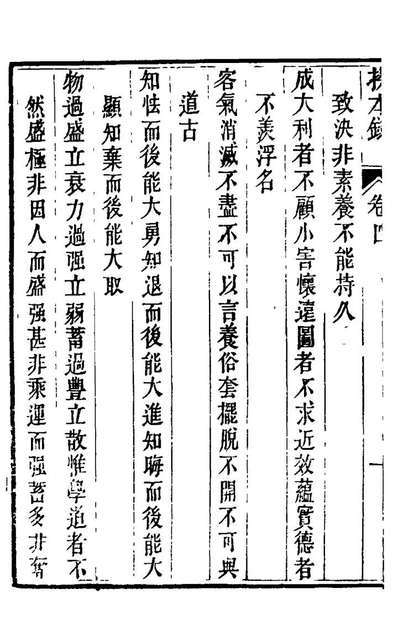 卷四
致決非素養不能持久
成大利者不顧小害懷遠圖者不求近效蘊實德者
不羨浮名
客氣消滅不盡不可以言養俗套擺脫不開不可與
道古
知怯而後能大勇知退而後能大進知晦而後能大
顯知棄而後能大取
物過盛立衰力過强立弱蓄過豐立散惟學道者不
然盛極非因人而盛强甚非乘運而强蓄多非奪